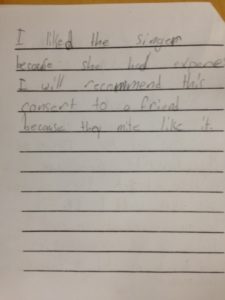 I liked the singer
because she had expere
I will recommend this
consert to a friend
because they mite like it.